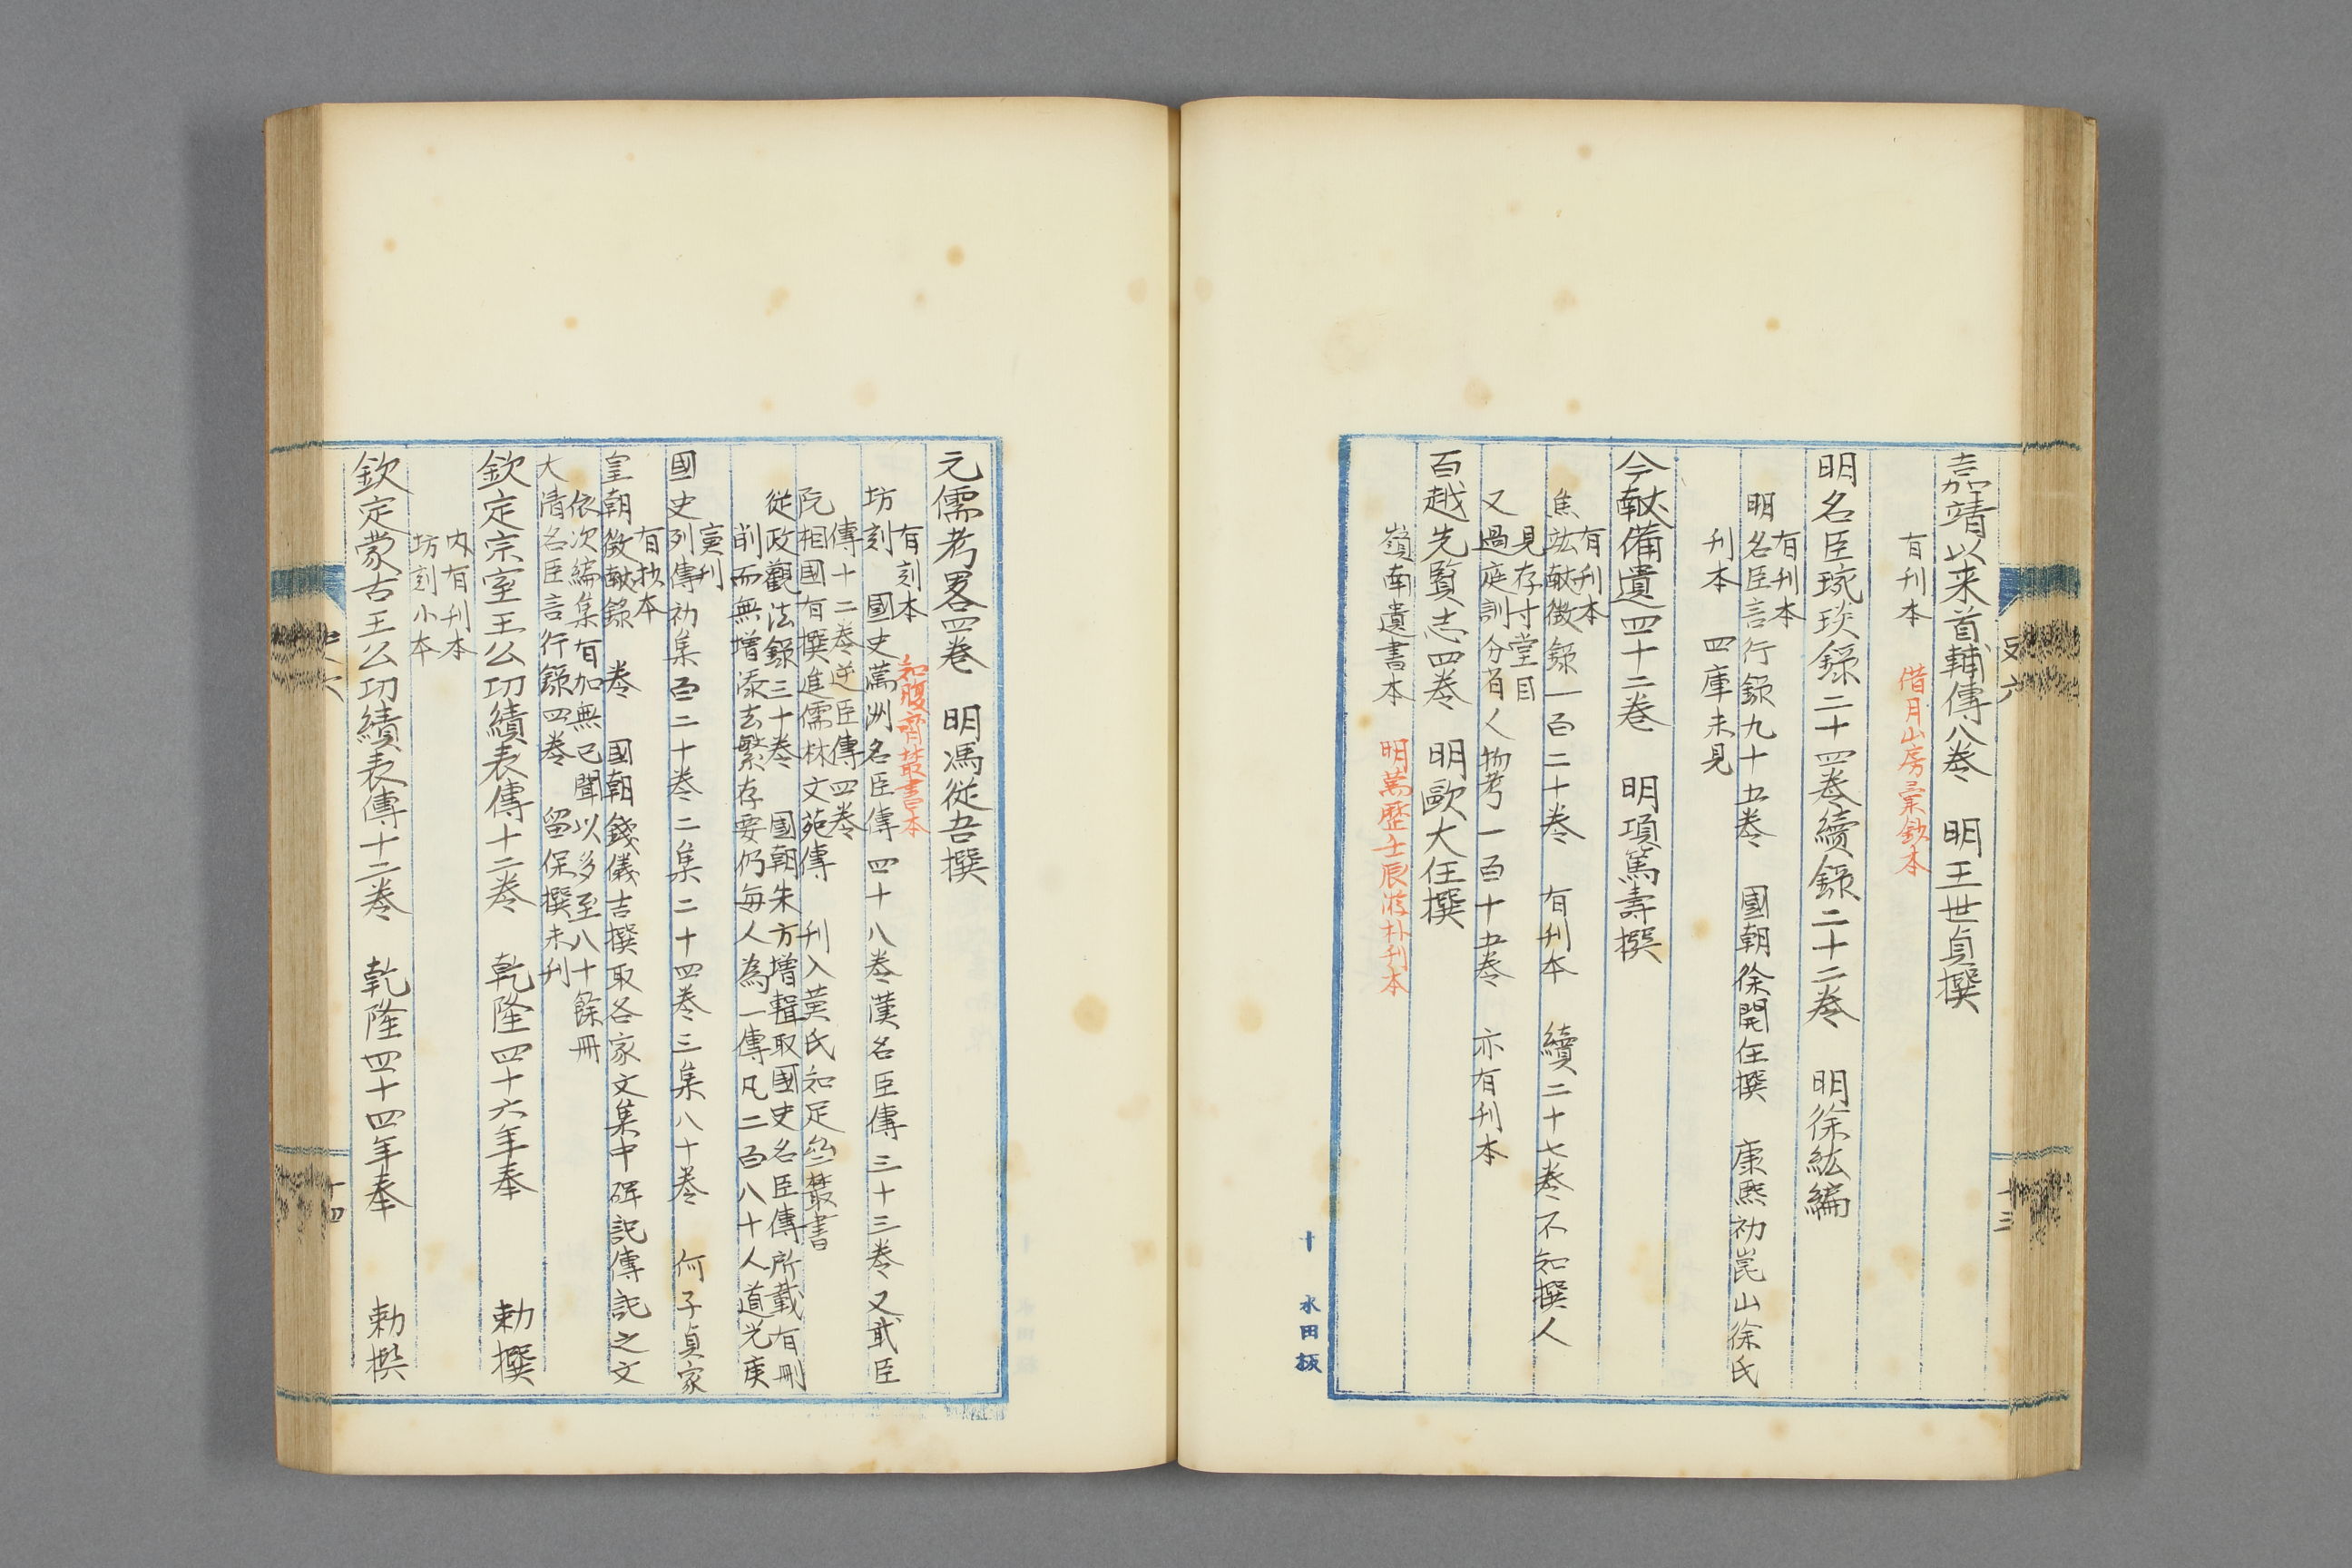 嘉靖以来首輔傳八卷　明王世貞撰
有刊本　借月山房彙鈔本
明名臣琬琰錄二十四卷續錄二十二卷　明徐紘編
有刊本
明名臣言行錄九十五卷　國朝徐開任撰　康熙初崑山徐氏
刊本　四庫未見
今献備遺四十二卷　明項篤壽撰
有刊本
焦竑献徵錄一百二十卷　有刊本　續二十七卷不知撰人
見存寸堂目
又過庭訓分省人物考一百十五卷　亦有刊本
百越先賢志四卷　明歐大任撰
嶺南遺書本　明萬歷壬辰游朴刊本
史六
十三
十　水田板
元儒考畧四卷　明馮從吾撰
有刻本　知服齋叢書本
坊刻　國史薦洲名臣傳四十八卷漢名臣傳三十三卷又貳臣
傳十二卷逆臣傳四卷
阮相國有撰進儒林文苑傳　刊入黃氏知足齋叢書
從政觀法錄三十卷　國朝朱方增輯取國史名臣傳所載有刪
削而無增添去繁存要仍每人為一傳凡二百八十人道光庚
寅刊
國史列傳初集百二十卷二集二十四卷三集八十卷　何子貞家
有抄本
皇朝徵献錄　卷　國朝錢儀吉撰取各家文集中碑記傳記之文
依次編集有加無已聞以多至八十餘冊
大清名臣言行錄四卷　留保撰未刊
欽定宗室王公功績表傳十二卷　乾隆四十六年奉　勅撰
內有刊本
坊刻小本
欽定蒙古王公功績表傳十二卷　乾隆四十四年奉　勅撰
十四